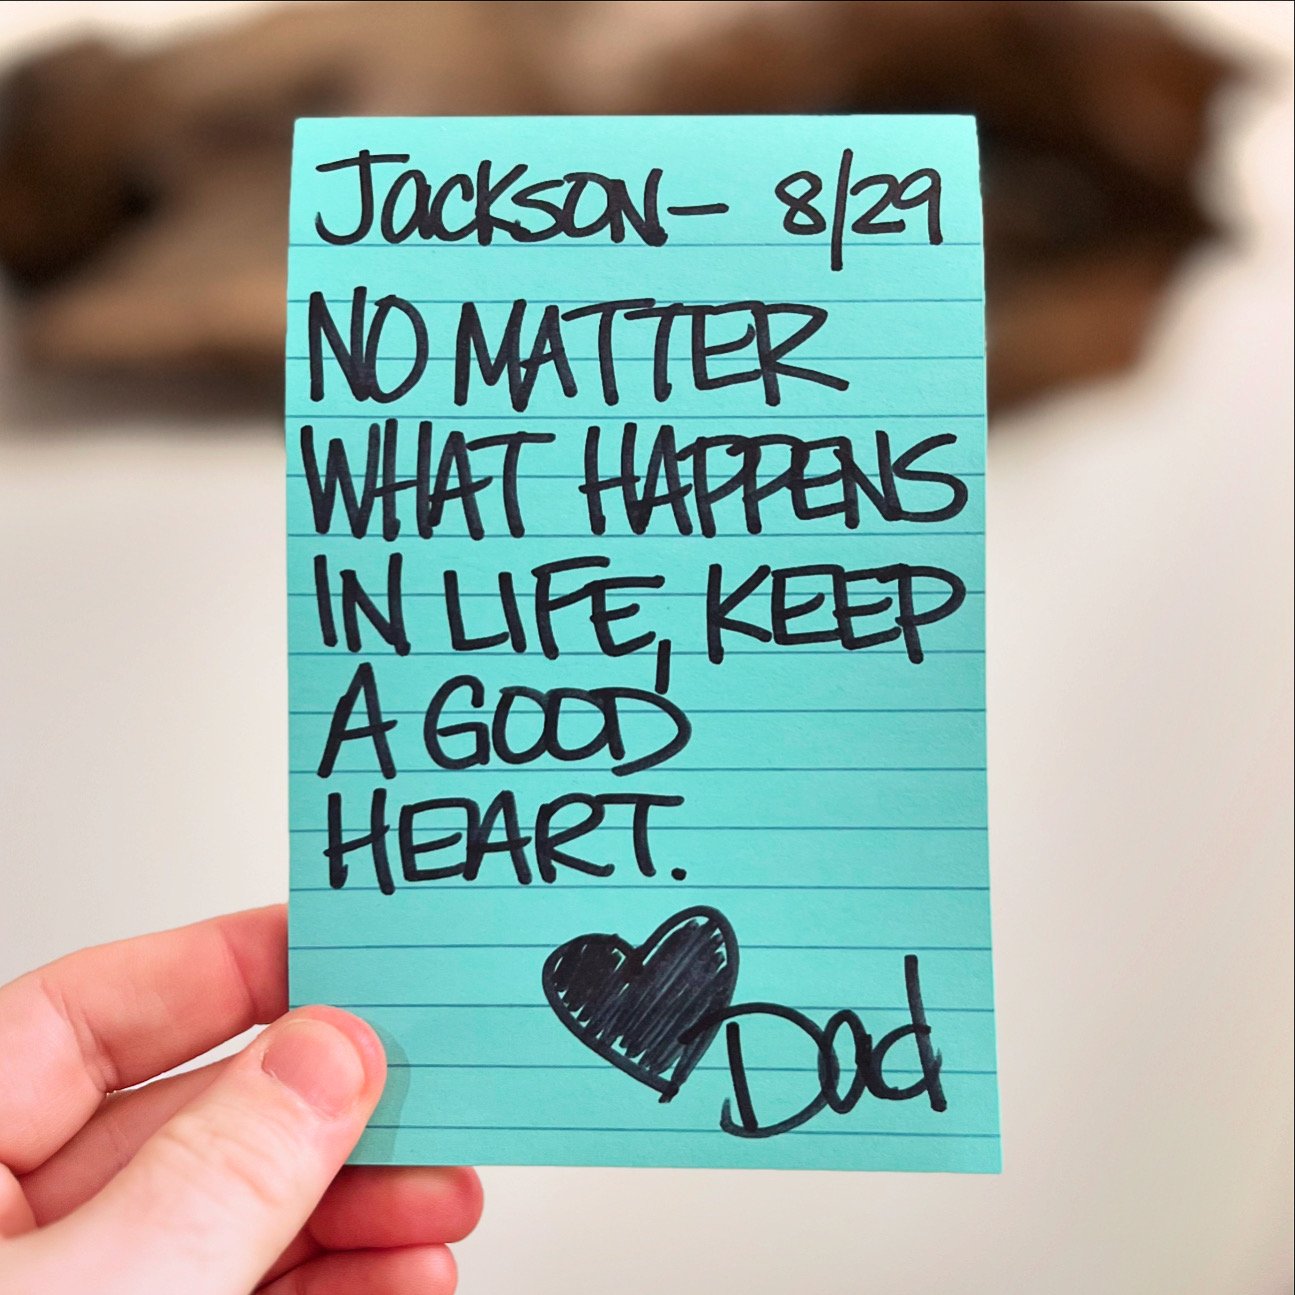 Jackson- 8/29
NO MATTER
WHAT HAPPENS
IN LIFE, KEEP
A GOOD
HEART.
Dad